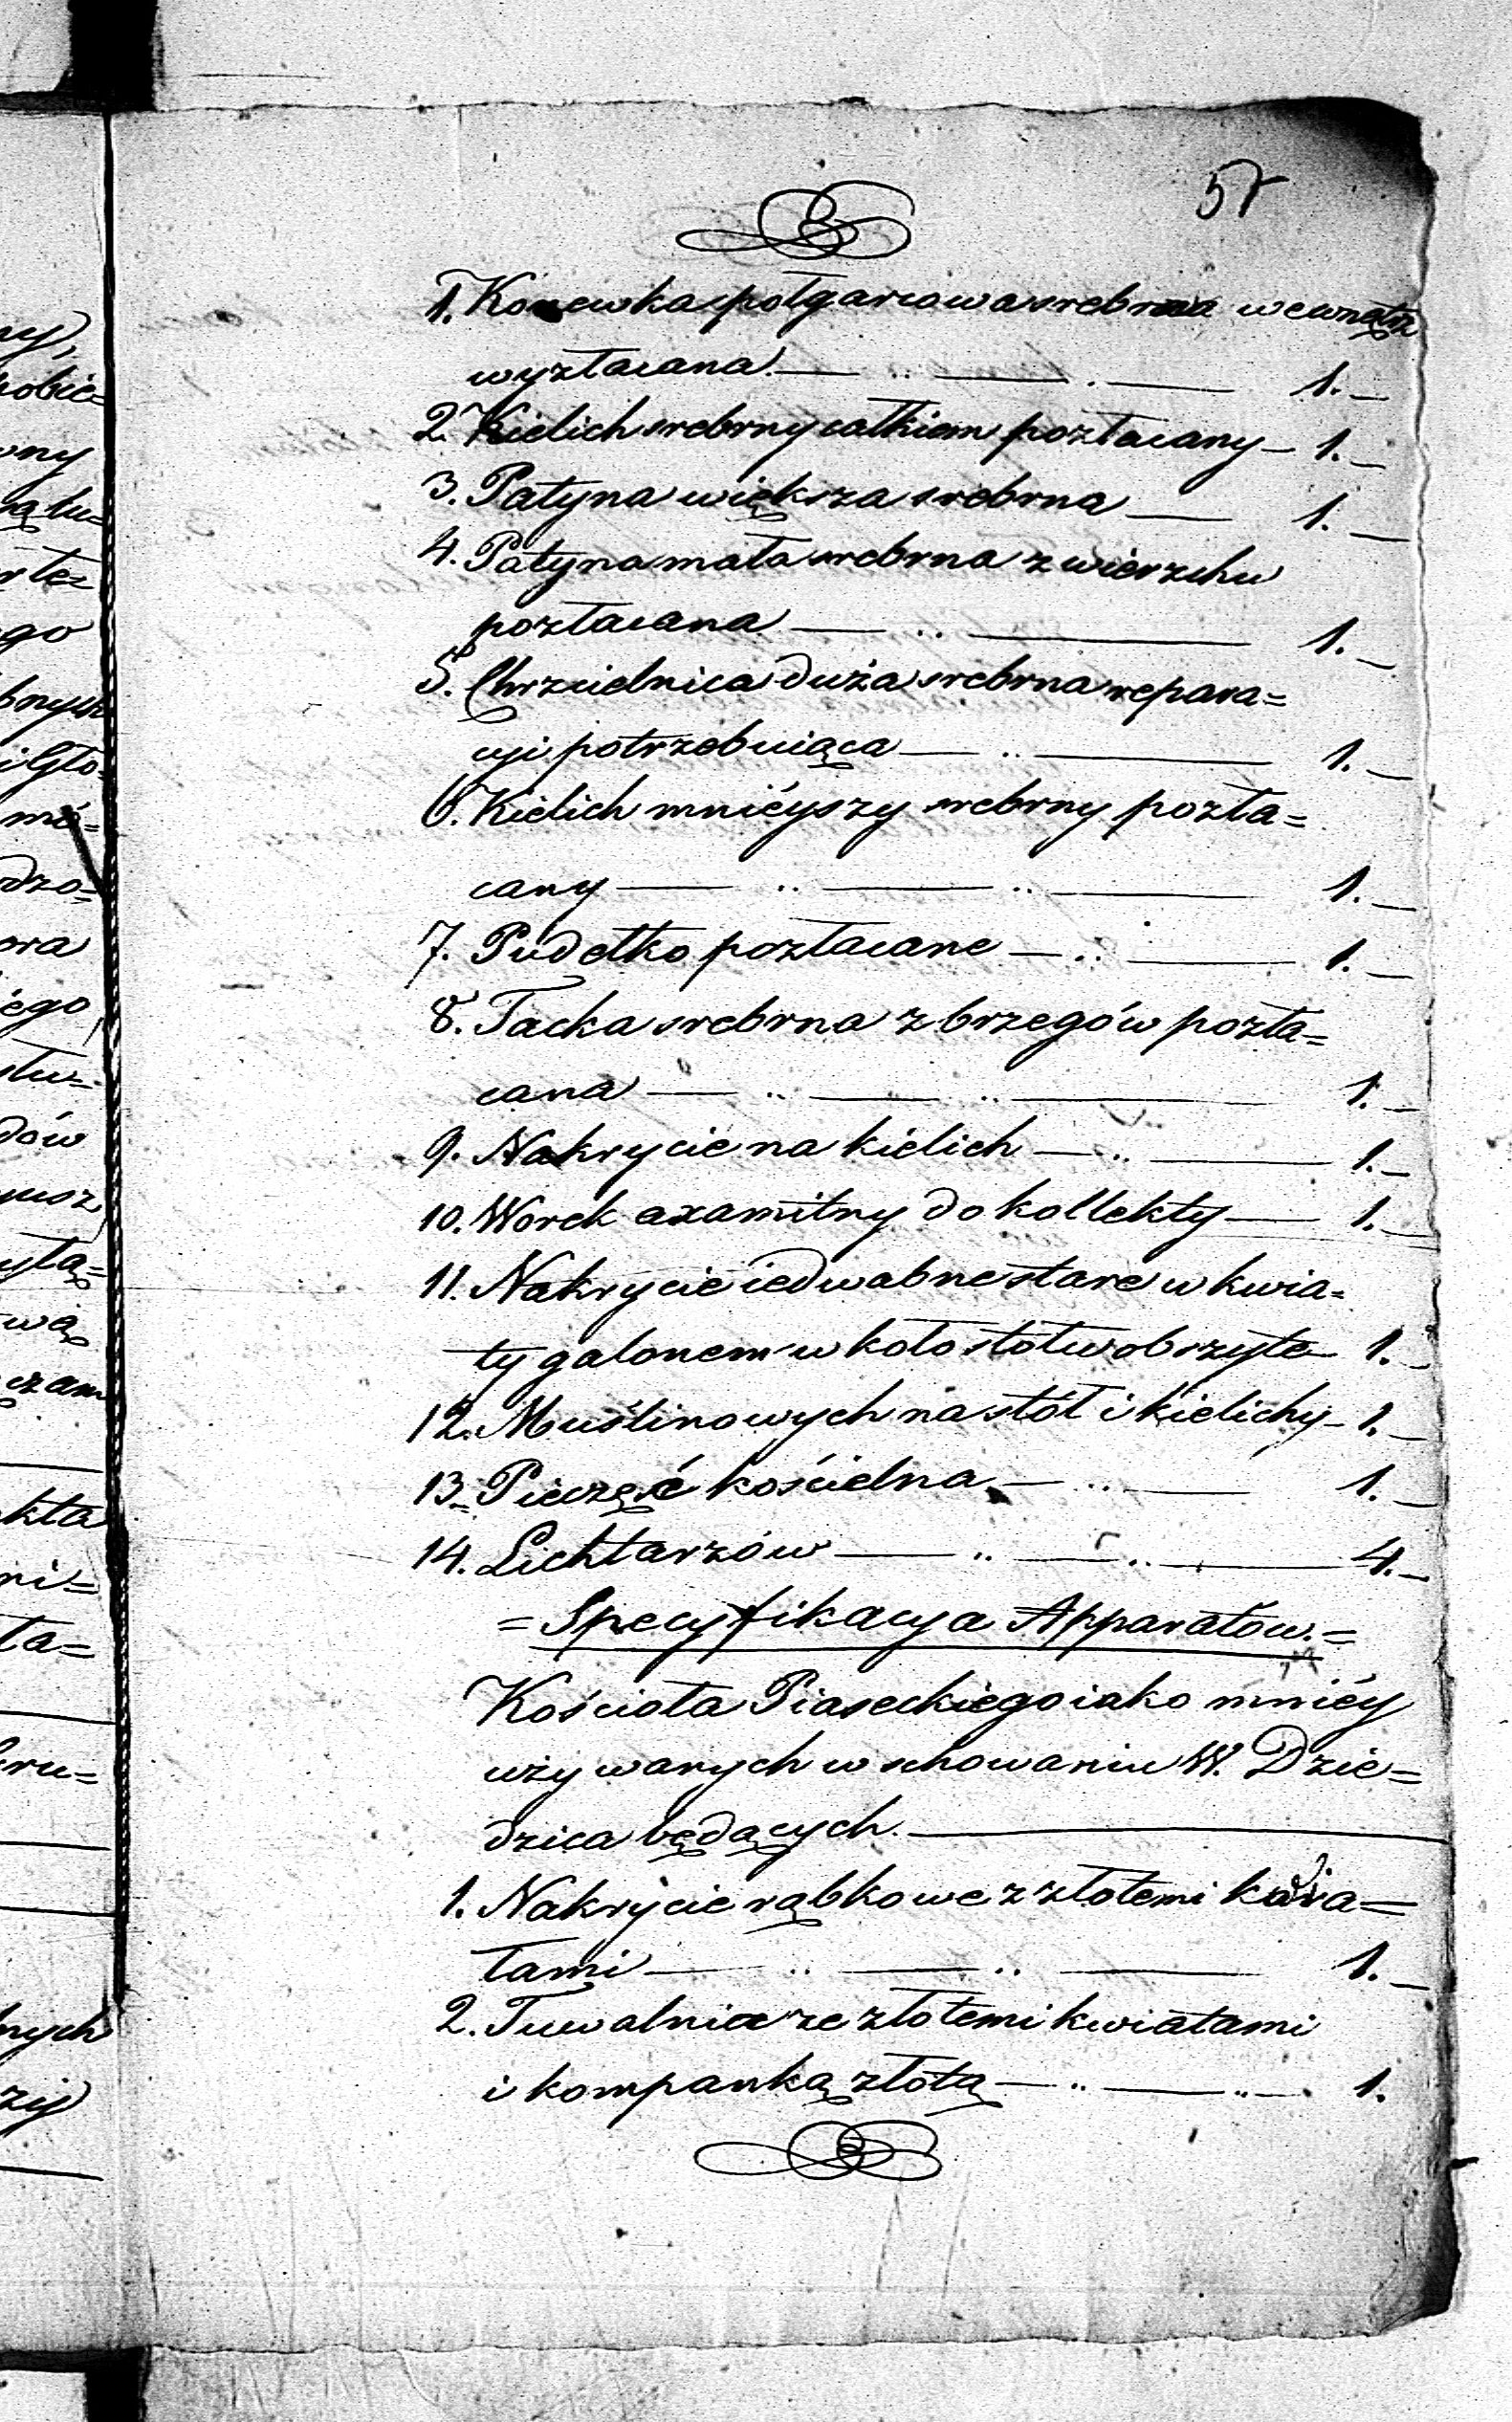 57
1. Konewka półgarcowa srebrna wewnątrz
wyzłacana. — .. — . — 1. —
2. Kielich srebrny całkiem pozłacany — 1. —
3. Patyna większa srebrna — 1. —
4. Patyna mała srebrna z wierzchu
pozłacana — .. — 1. —
5. Chrzcielnica duża srebrna repara=
cyi potrzebuiąca — .. — 1. —
6. Kielich mniéyszy srebrny pozła=
cany — .. — .. — 1. —
7. Pudełko pozłacane — .. — 1. —
8. Tacka srebrna z brzegów pozła=
cana — .. — .. — 1. —
9. Nakrycie na kielich — .. — 1. —
10. Worek axamitny do kollekty — 1. —
11. Nakrycie iedwabne stare w kwia=
ty galonem w koło stołu obszyte — 1. —
12. Muślinowych na stół i kielichy — 1. —
13. Pieczęść kościelna — .. — 1. —
14. Lichtarzów — .. — .. — 4. —
= Specyfikacya Apparatów. =
Kościoła Piaseckiego iako mniéy
używanych w schowaniu W. Dzie=
dzica będących. —
1. Nakrycie rąbkowe z złotemi kwia=
tami — .. — .. — 1. —
2. Tuwalnia ze złotemi kwiatami
i kompanką złotą — .. — .. — 1.
ny,
obie=
ony
ału=
też
go
bnych
mó=
dzo=
ora
iego
stu=
dów
ytą=
wą
czam
kta
ni=
ta=
ru=
nych
zy